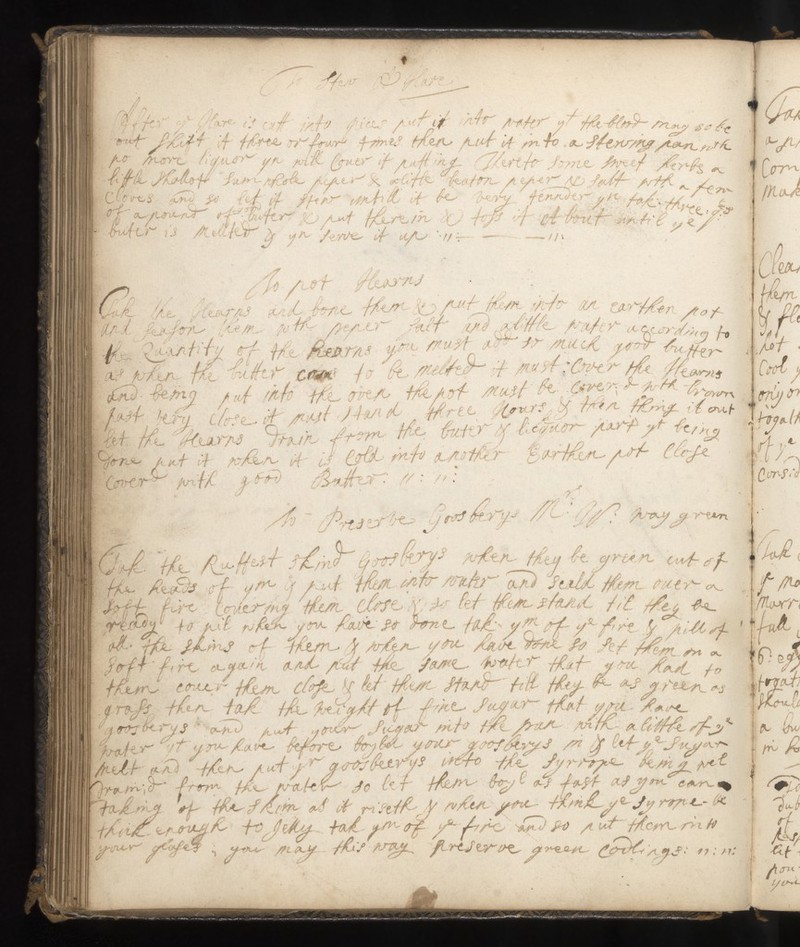 To Stew a Hare
After ye Hare is cutt into pices put it into water yt the blod may so be
out Shift it three or four times then put it into a Stewing pan with
no more liquor yn will Cover it putting thereto some sweet herbs a
little Shallot sum whole peper & a little beaton peper & salt wth a few
Cloves and so let it stew untill it be very tennder yn tak three
of a pound of buter & put there in & toss it about until ye
buter is melted & yn serve it up
To pot Hearns
Tak the Hearns and bone them & put them into an earthen pot
and season them with peper salt and a little water according to
the Quantity of the hearns you must add so much good butter
as when the butter coms to be melted it must Cover the Hearns
and being put into the oven the pot must be Coverd with brown
past very close it must stand three Hours & then thing it out
let the Hearns drain from the buter & licquor part yt being
done put it when it is Cold into another Earthen pot Close
Coverd with good Butter
To Preserve Goosberys Mrs W: way green
Tak the Ruffest skind Goosberys when they be green cut of
the heads of ym & put them into water and scald them over a
soft fire Covering them Close & so let them stand till they be
ready to pil when you have so done tak ym of ye fire & pill of
all the skins of them & when you have done so set them on a
soft fire again and put the same water that you had to
them cover them close & let them stand till they be as green as
grass then tak the weight of fine sugar that you have
goosberys and put your sugar into the pan with a little of ye
water yt you have before boyld your goosberys in & let ye sugar
melt and then put yr goosbeerys into the syrrope being wel
draind from the water so let them boyl as fast as you can
taking of the skim as it riseth & when you think ye syrope be
thick enough to Jelly tak ym of ye fire and so put them into
your glases, you may this way preserve green Codlings
Tak
Com
Mak
Clea
them
& fl
pot
Cool y
onyon
togath
of ye
Consid
Tak
Marr
full
6: eg
togath
should
a bu
in
of